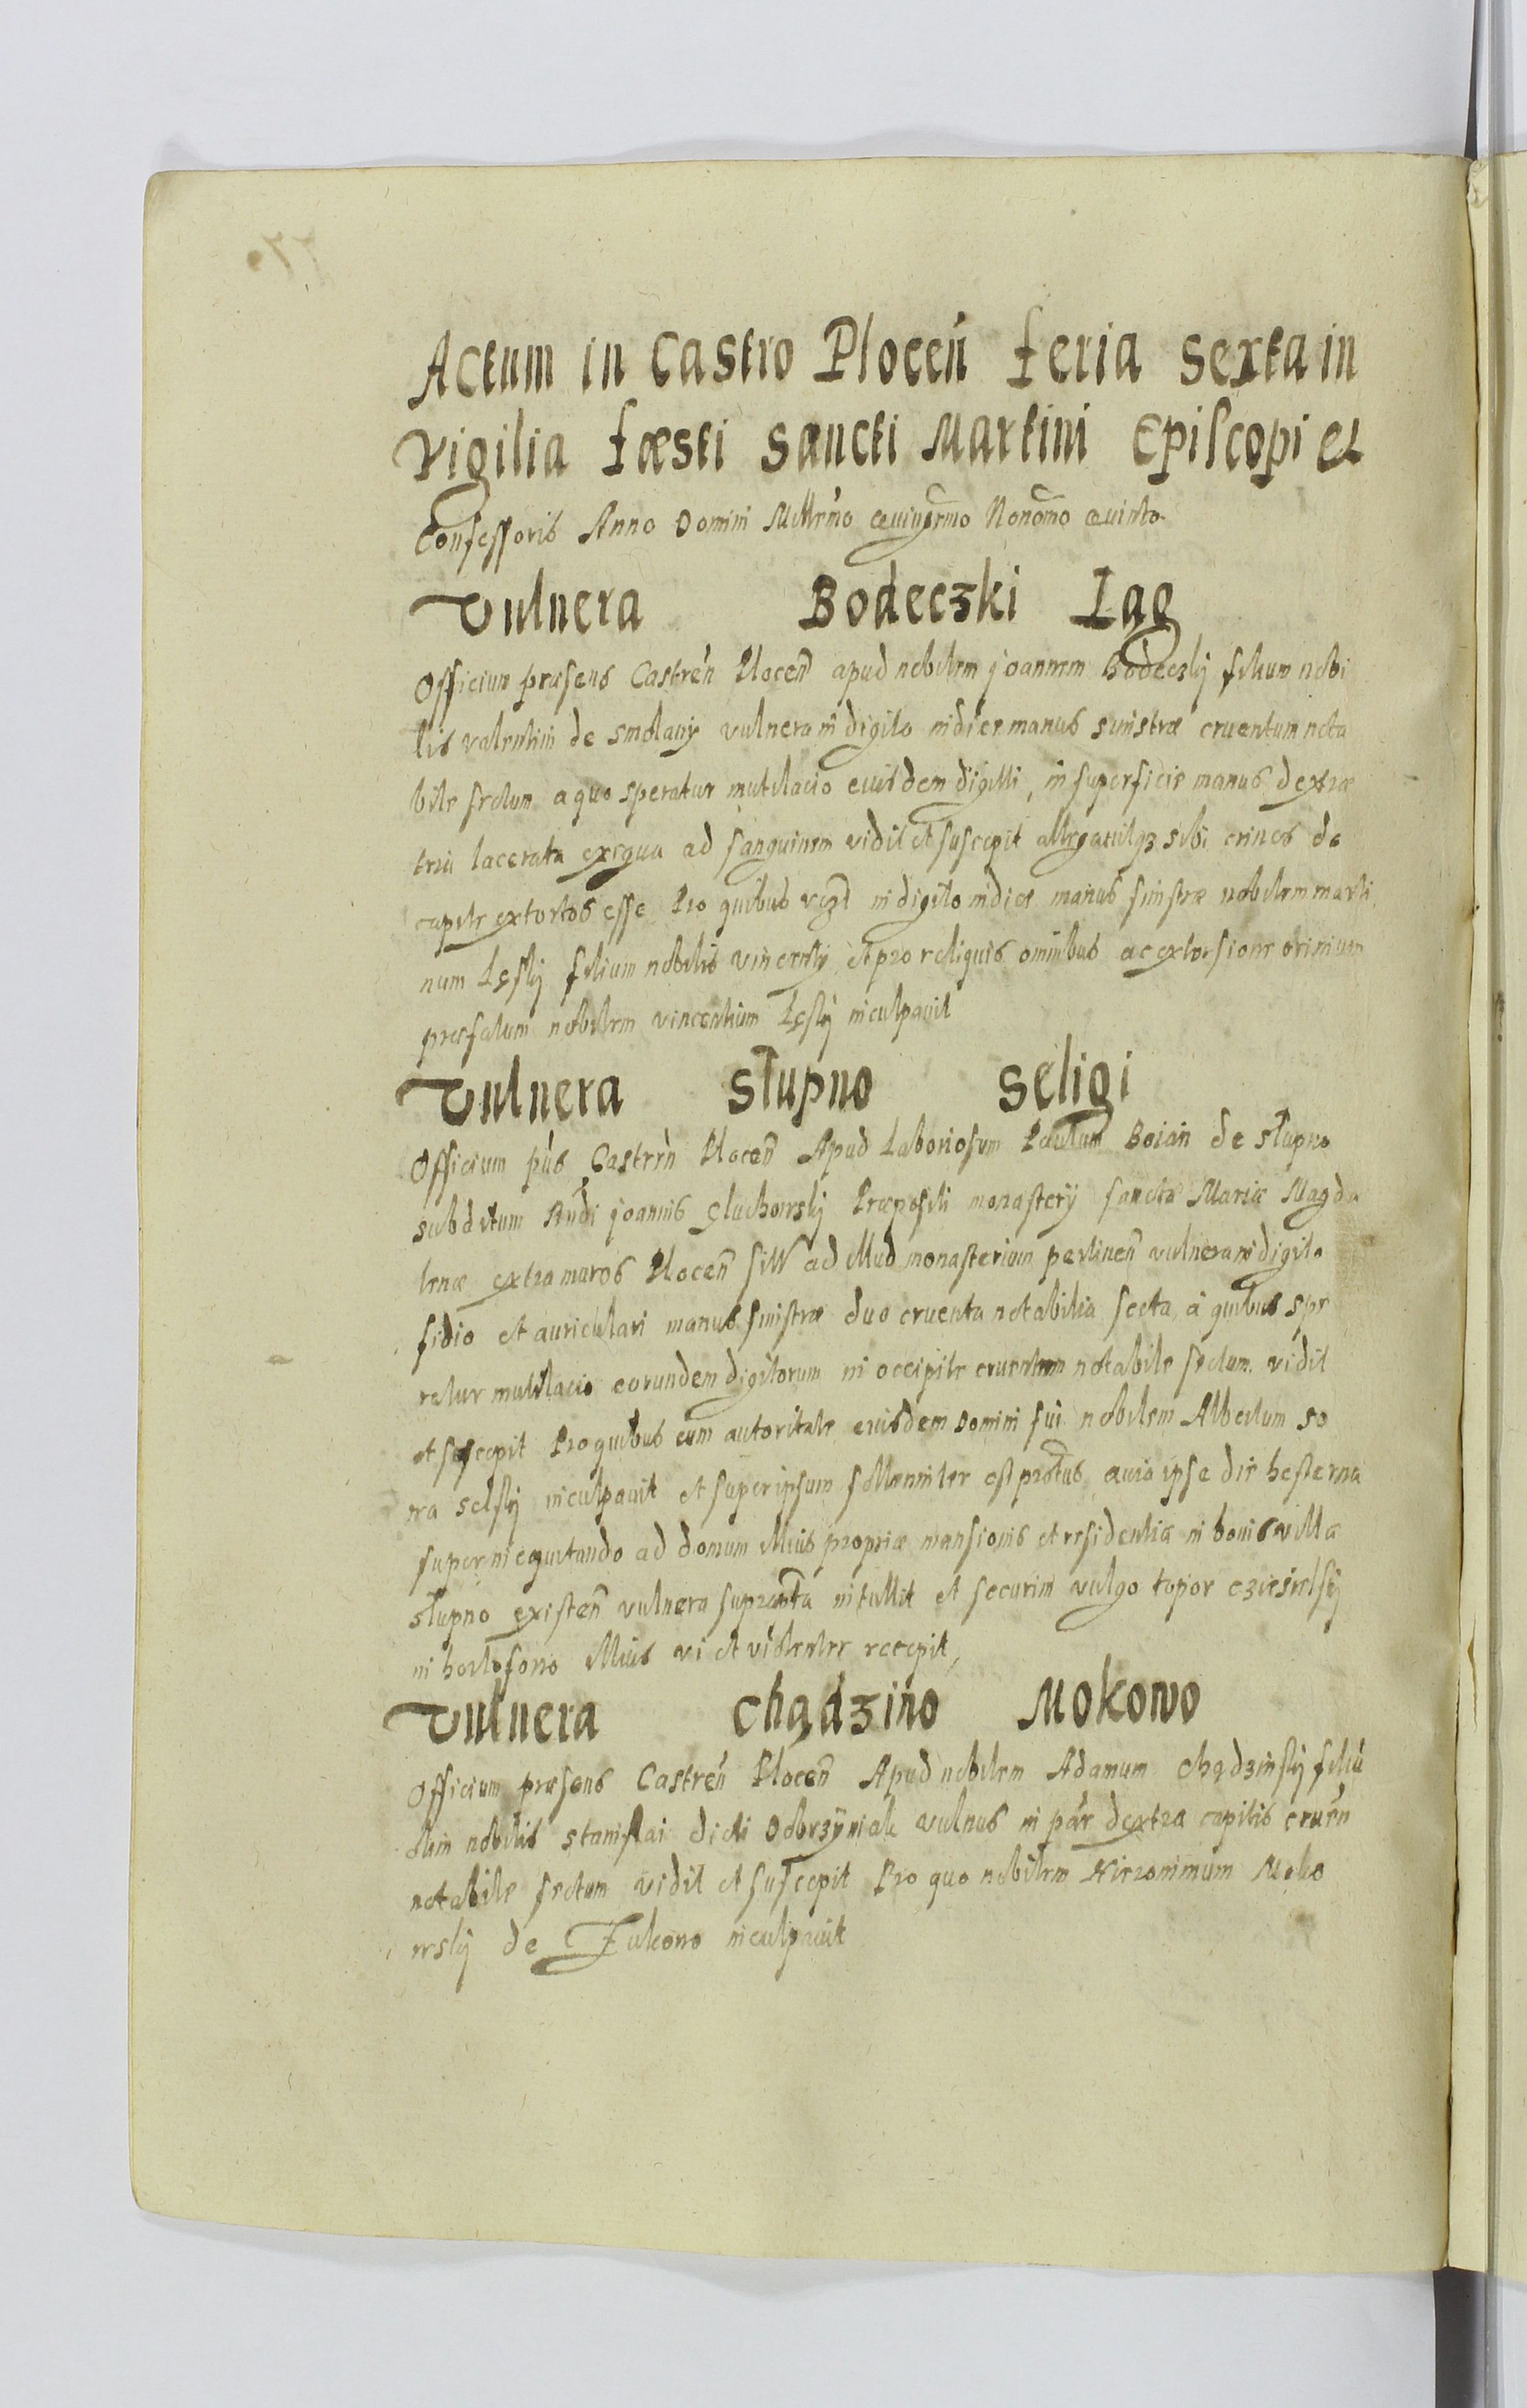 Actum in Castro Plocen̄ feria sexta in
vigilia fæsti Sancti Martini Episcopi et
Confessoris Anno Domini Mill̃mo Quing̃mo Nonog̃mo Quinto
Vulnera Bodeczki Łąg
Officium præsens Castren̄ Plocen̄ apud nobilem joannem Bodeczky filium nobi
lis valentini de smolany vulnera in digito indice manus sinistræ cruentum nota
bile sectum a quo speratur mutilacio eiusdem digitti, in superficie manus dextræ
tria lacerata exigua ad sanguinem vidit et suscepit allegavitqȝ sibi crines de
capite extortos esse Pro quibus vcȝt in digito indice manus sinistræ nobilem marti
num Łęsky filium nobilis vincenty et pro reliquis omnibus ac extorsione crinium
præfatum nobilem vincentium Łęsky inculpavit
Vulnera Słupno Seligi
Officium p̄ns Castren̄ Plocen̄ Apud Laboriosum Paulum Boian de słupno
subditum Rñdi joannis Głuchowsky Præpositi monastery sanctæ Mariæ Magda
lenæ extra muros Plocen̄ siti ad illud monasterium pertinen̄ vulnera in digito
fidio et auriculari manus sinistræ duo cruenta notabilia secta, a quibus spe
ratur mutilacio eorundem digitorum in occipite cruentum notabile sectum vidit
et suscepit Pro quibus cum autoritate eiusdem Domini sui nobilem Albertum so
ra selsky inculpavit et super ipsum sollenniter est protus quia ipse die hesterna
superinequitando ad domum illius propriæ mansionis et residentiæ in bonis villæ
słupno existen̄ vulnera suprãta intullit et securim vulgo topor cziesielsky
in horto suo illius vi et violenter recepit,
Vulnera Chądzino Mokowo
Officium præsens Castren̄ Plocen̄ Apud nobilem Adamum Chądzinsky filiū
olim nobilis stanislai dicti Dobrzyniak vulnus in par̄ dextra capitis cruen̄
notabile sectum vidit et suscepit Pro quo nobilem Hieronimum Moko
wsky de Fulkowo inculpavit